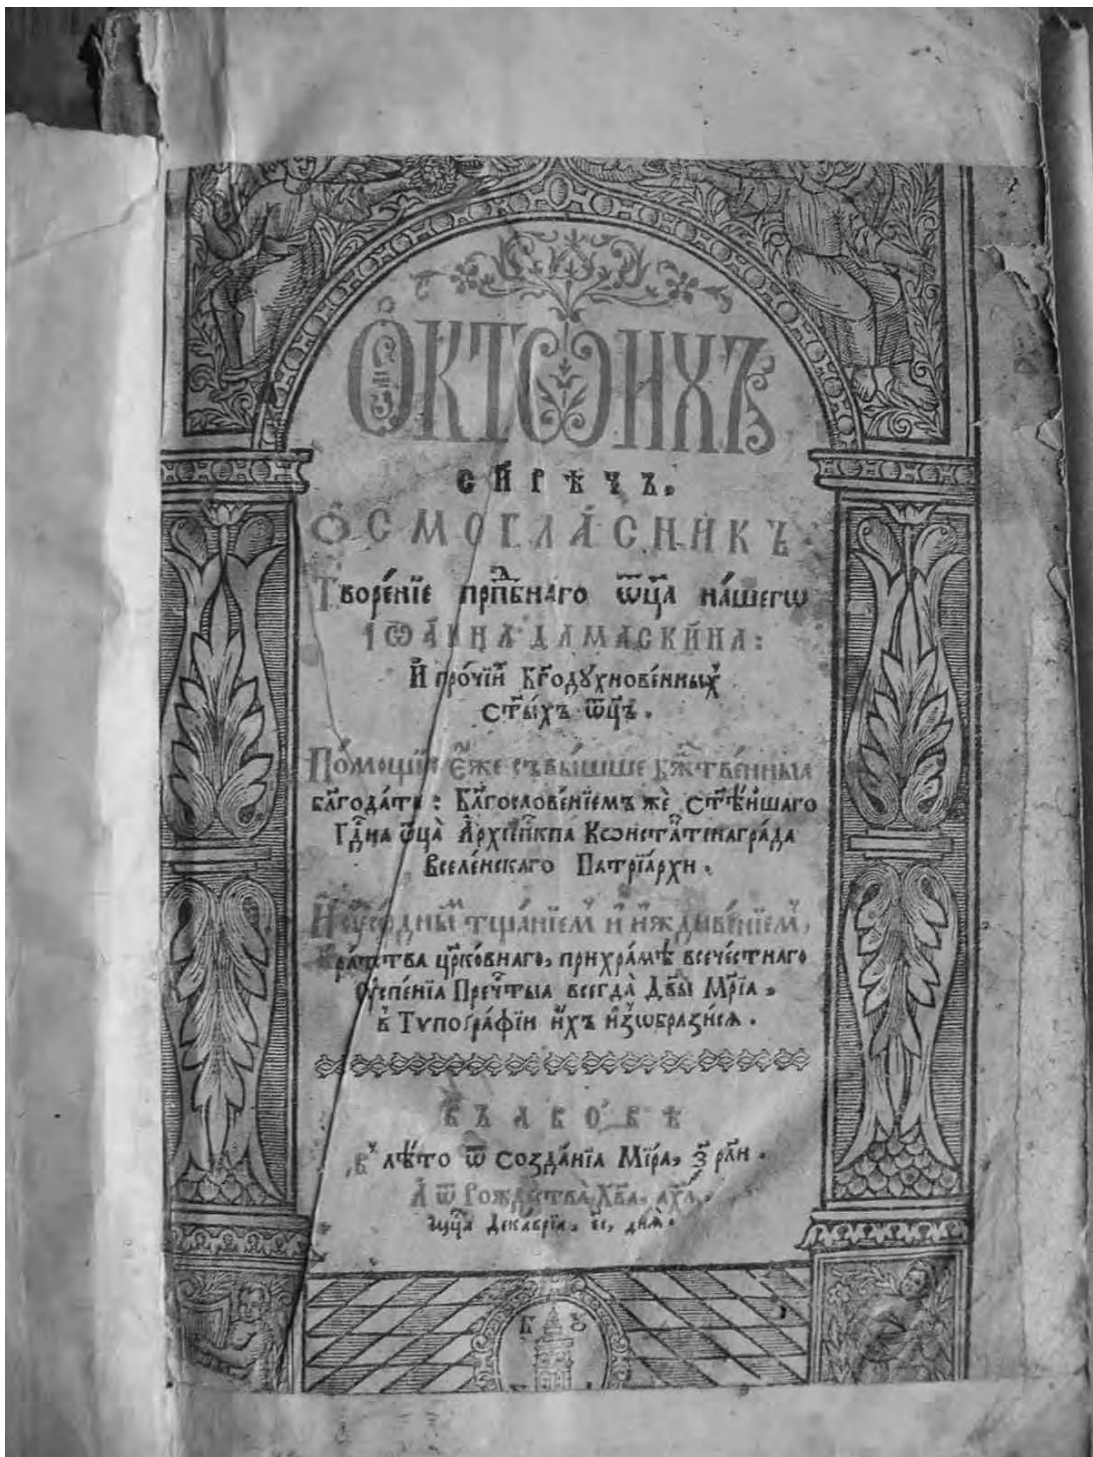 Ѻ҆КТѠИХЪ
СИ́РѢЧЪ.
Ѻ҆СМОГЛА́СНИКЪ
Творе́нїе прпⷣбнаго ѿц҃а на́шегѡ
ІѠА́ННА ДАМАСКИ́НА:
И҆ про́чїиⷯ бг҃одꙋхнове́нныⷯ
ст҃ы́хъ ѿц҃ъ.
По́мощїю є҆́же съвы́шше бж҃тве́нныѧ
блг҃ода́ти: Блг҃ослове́нїемъ же ст҃ѣ́йшаго
Гдⷭ҇на ѿц҃а̀ А҆рхїеп҃кпа Кѡнста́тѣнагра́да
Вселе́нскаго Патрїа́рхи.
тща́нїемъ и҆ и҆ждыве́нїемъ,
Бра́тства цр҃ко́внаго, при хра́мѣ всече́стнаго
Ѹ҆спе́нїѧ Преч҃тыѧ всегда̀ Дв҃ы Мр҃їѧ,
в̾ Тѵпогра́фїи и҆́хъ и҆зѡбрази́сѧ.
ВЪ ЛВО́ВѢ
в̾ лѣ́то ѿ Созда́нїѧ Мі́ра, ҂з҃ рл҃и.
А҆ ѿ Рождества̀ Хв҃а, ҂ах҃л.
мцⷭ҇а Деке́врїѧ, є҃і, днѧ̀.